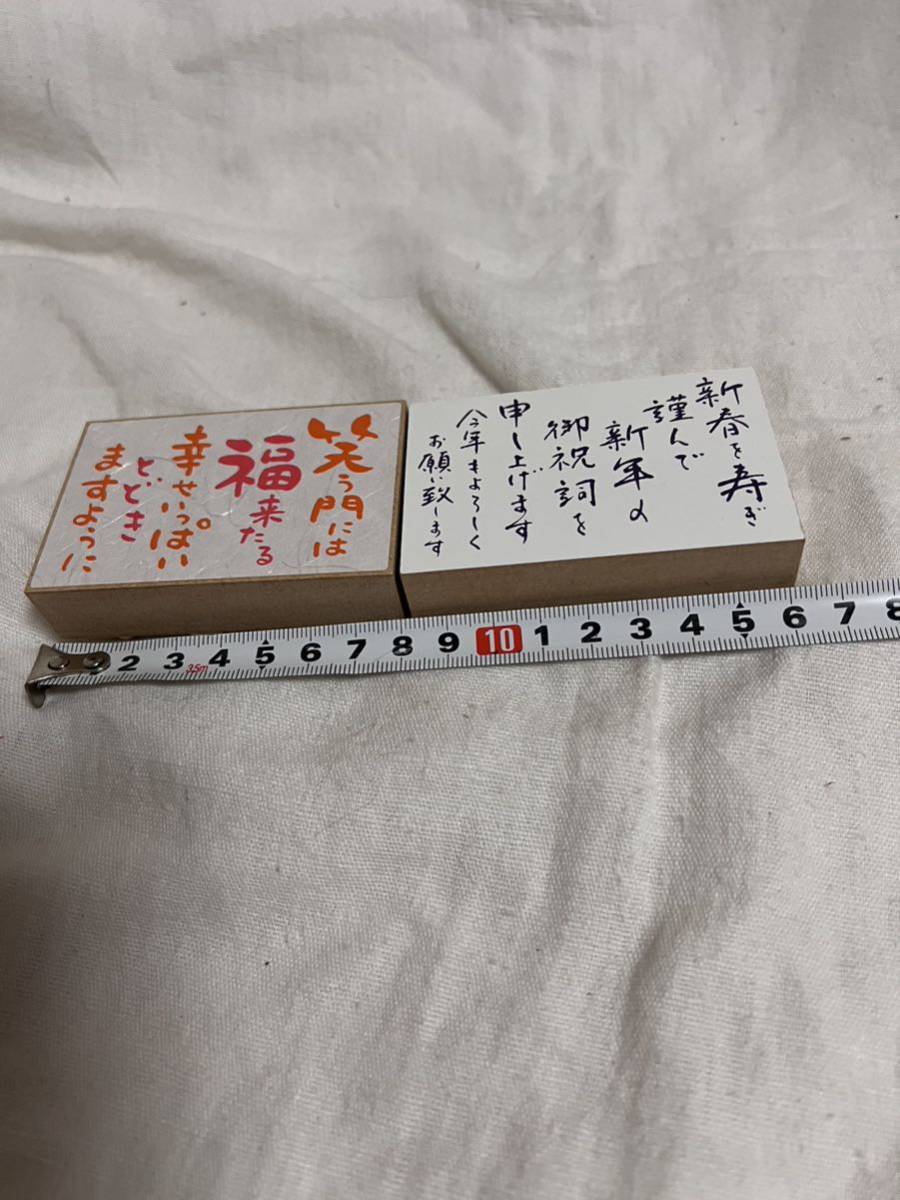 笑う門には
福来たる
幸せいっぱい
とどき
ますように
新春を寿ぎ
謹んで
新年の
御祝詞を
申し上げます
今年もよろしく
お願い致します
2 3 3.5m 4 5 6 7 8 9 10 1 2 3 4 5 6 7 8